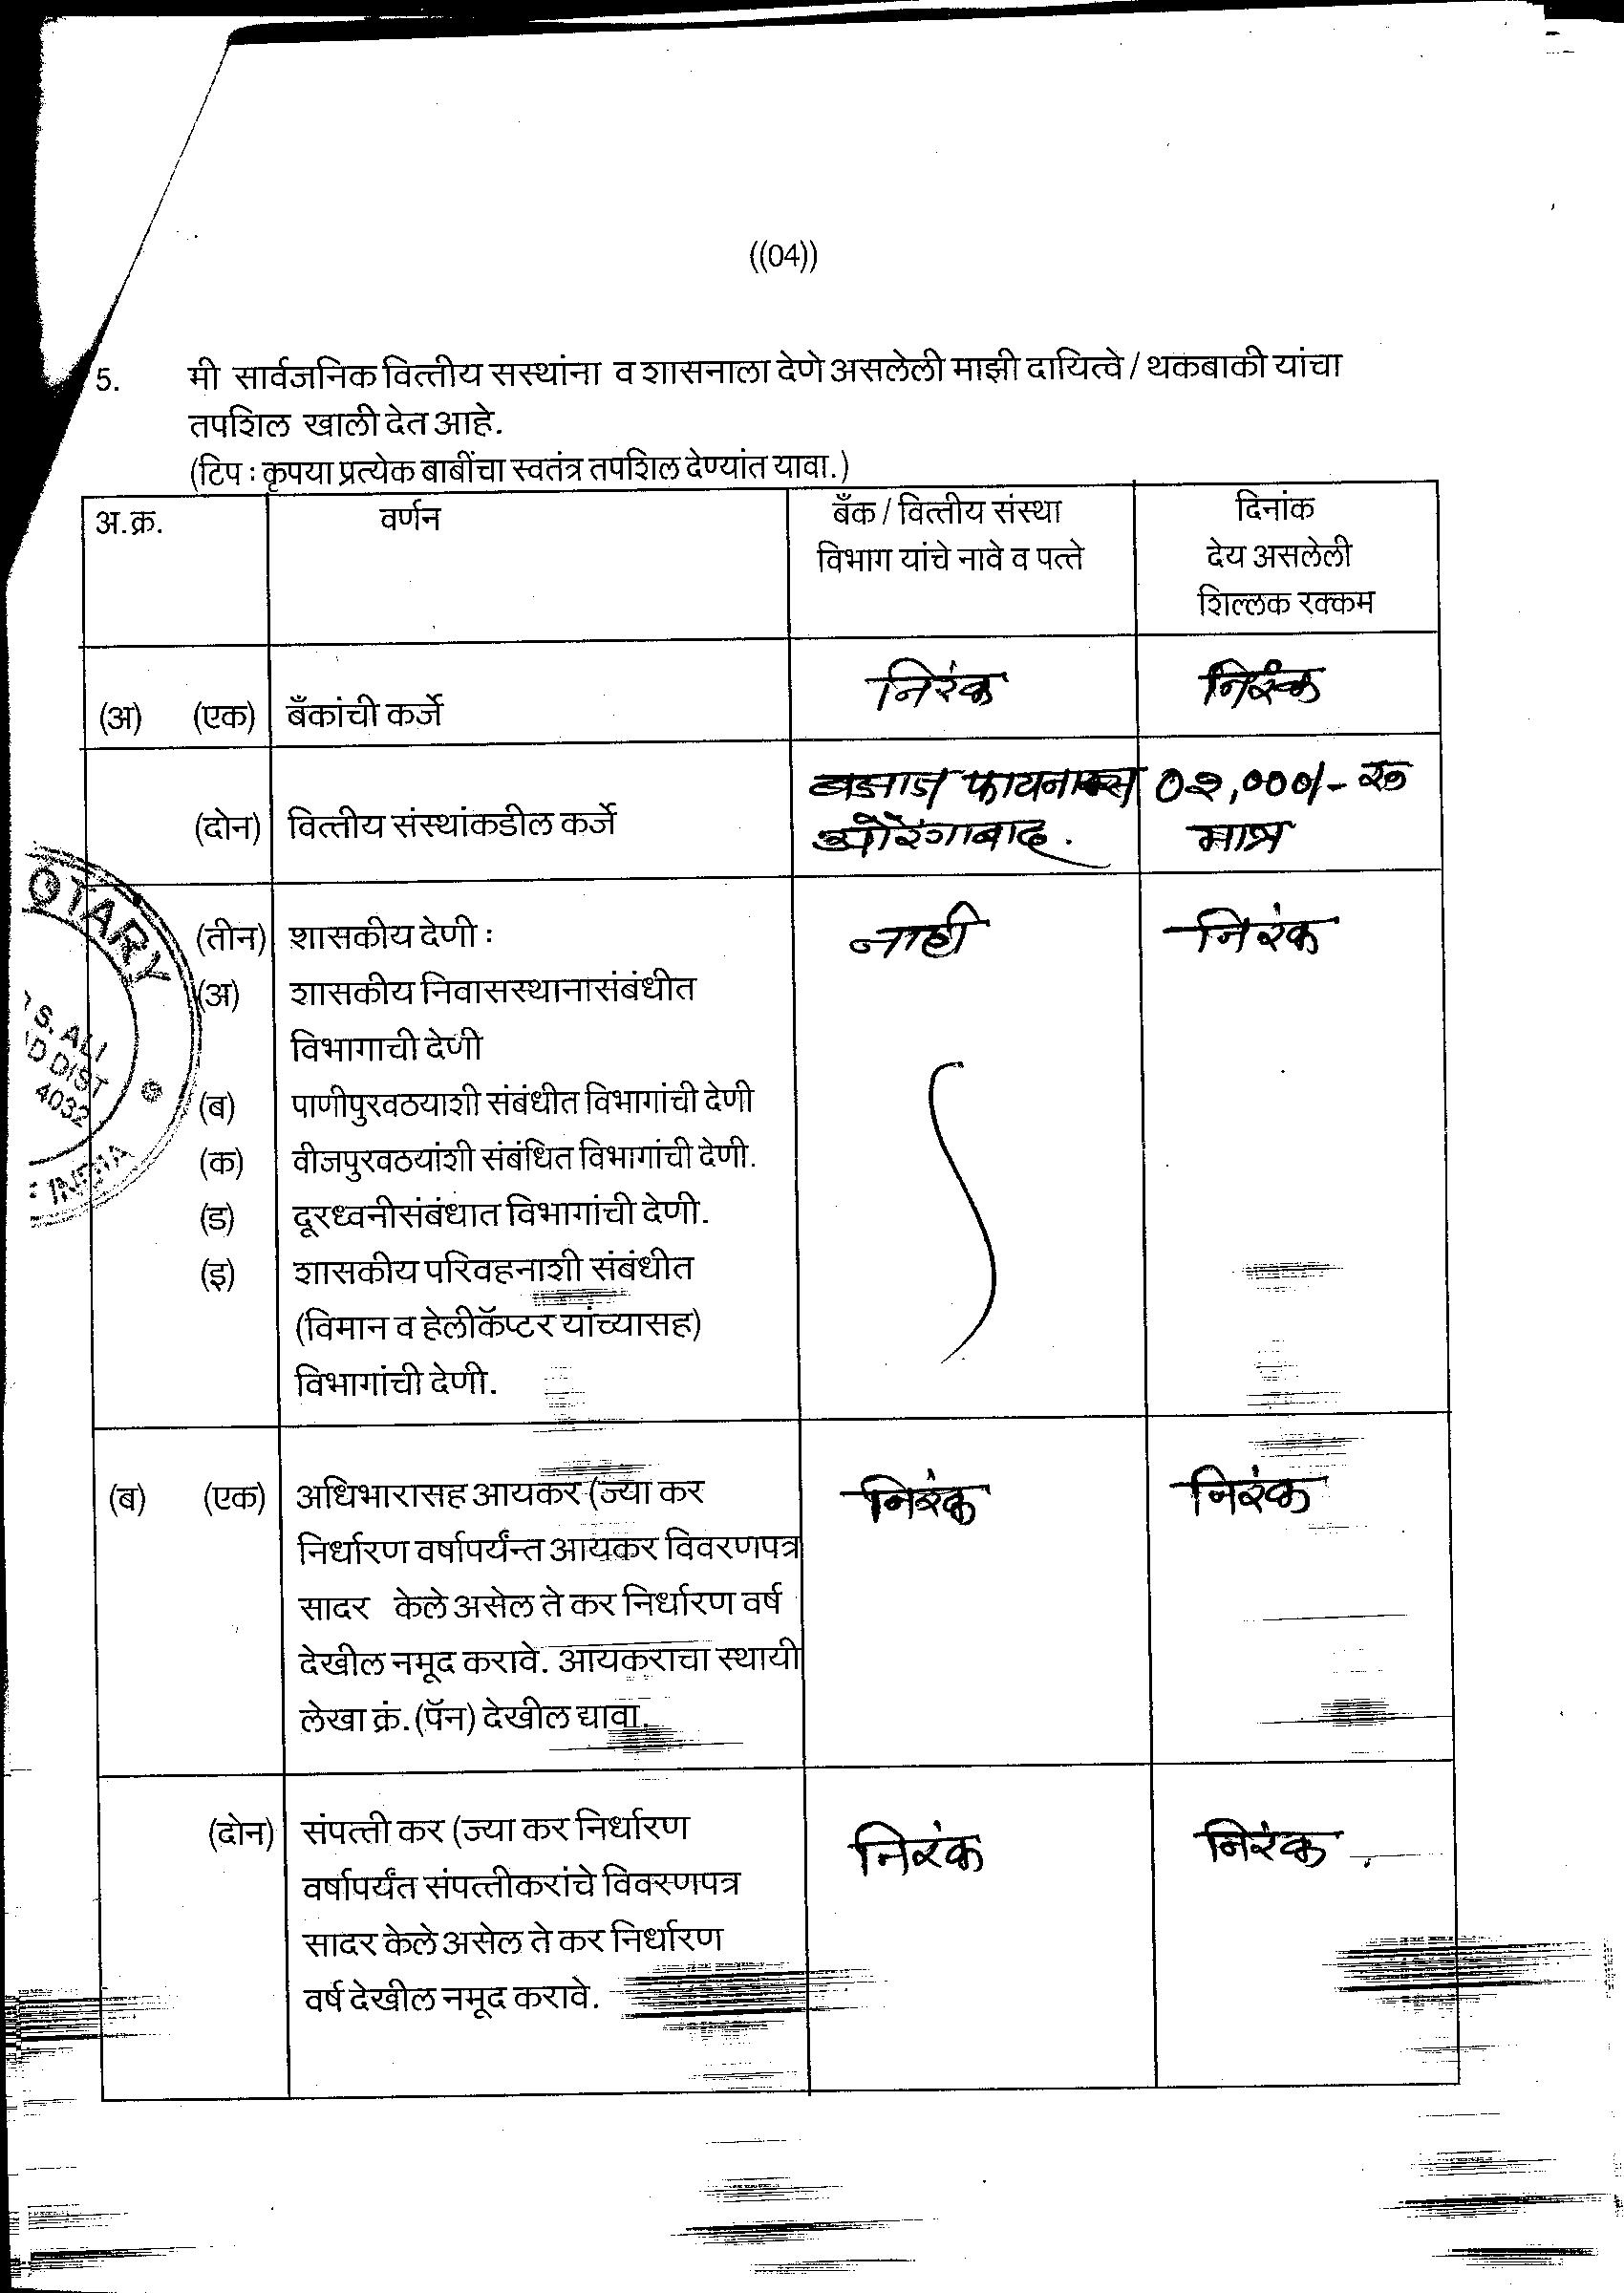 ((04))
5. मी सार्वजनिक वित्तीय सस्थांना व शासनाला देणे असलेली माझी दायित्वे / थकबाकी यांचा
तपशिल खाली देत आहे.
(टिप : कृपया प्रत्येक बाबींचा स्वतंत्र तपशिल देण्यांत यावा.)
अ.क्र. वर्णन बँक / वित्तीय संस्था दिनांक
विभाग यांचे नावे व पत्ते देय असलेली
शिल्लक रक्कम
(अ) (एक) बँकांची कर्जे निरंक निरंक
बजाज फायनान्स
(दोन) वित्तीय संस्थांकडील कर्जे औरंगाबाद. मात्र
(तीन) शासकीय देणी : नाही निरंक
(अ) शासकीय निवासस्थानासंबंधीत
विभागाची देणी
(ब) पाणीपुरवठयाशी संबंधीत विभागांची देणी
(क) वीजपुरवठयांशी संबंधित विभागांची देणी.
(ड) दूरध्वनीसंबंधात विभागांची देणी.
(इ) शासकीय परिवहनाशी संबंधीत
(विमान व हेलीकॅप्टर यांच्यासह)
विभागांची देणी.
(ब) (एक) अधिभारासह आयकर (ज्या कर निरंक निरंक
निर्धारण वर्षापर्यंन्त आयकर विवरणपत्र
सादर केले असेल ते कर निर्धारण वर्ष
देखील नमूद करावे. आयकराचा स्थायी
लेखा क्रं. (पॅन) देखील द्यावा.
(दोन) संपत्ती कर (ज्या कर निर्धारण निरंक निरंक
वर्षापर्यंत संपत्तीकरांचे विवरणपत्र
सादर केले असेल ते कर निर्धारण
वर्ष देखील नमूद करावे.
OTARY
S. ALI
D DIST
4032
INDIA